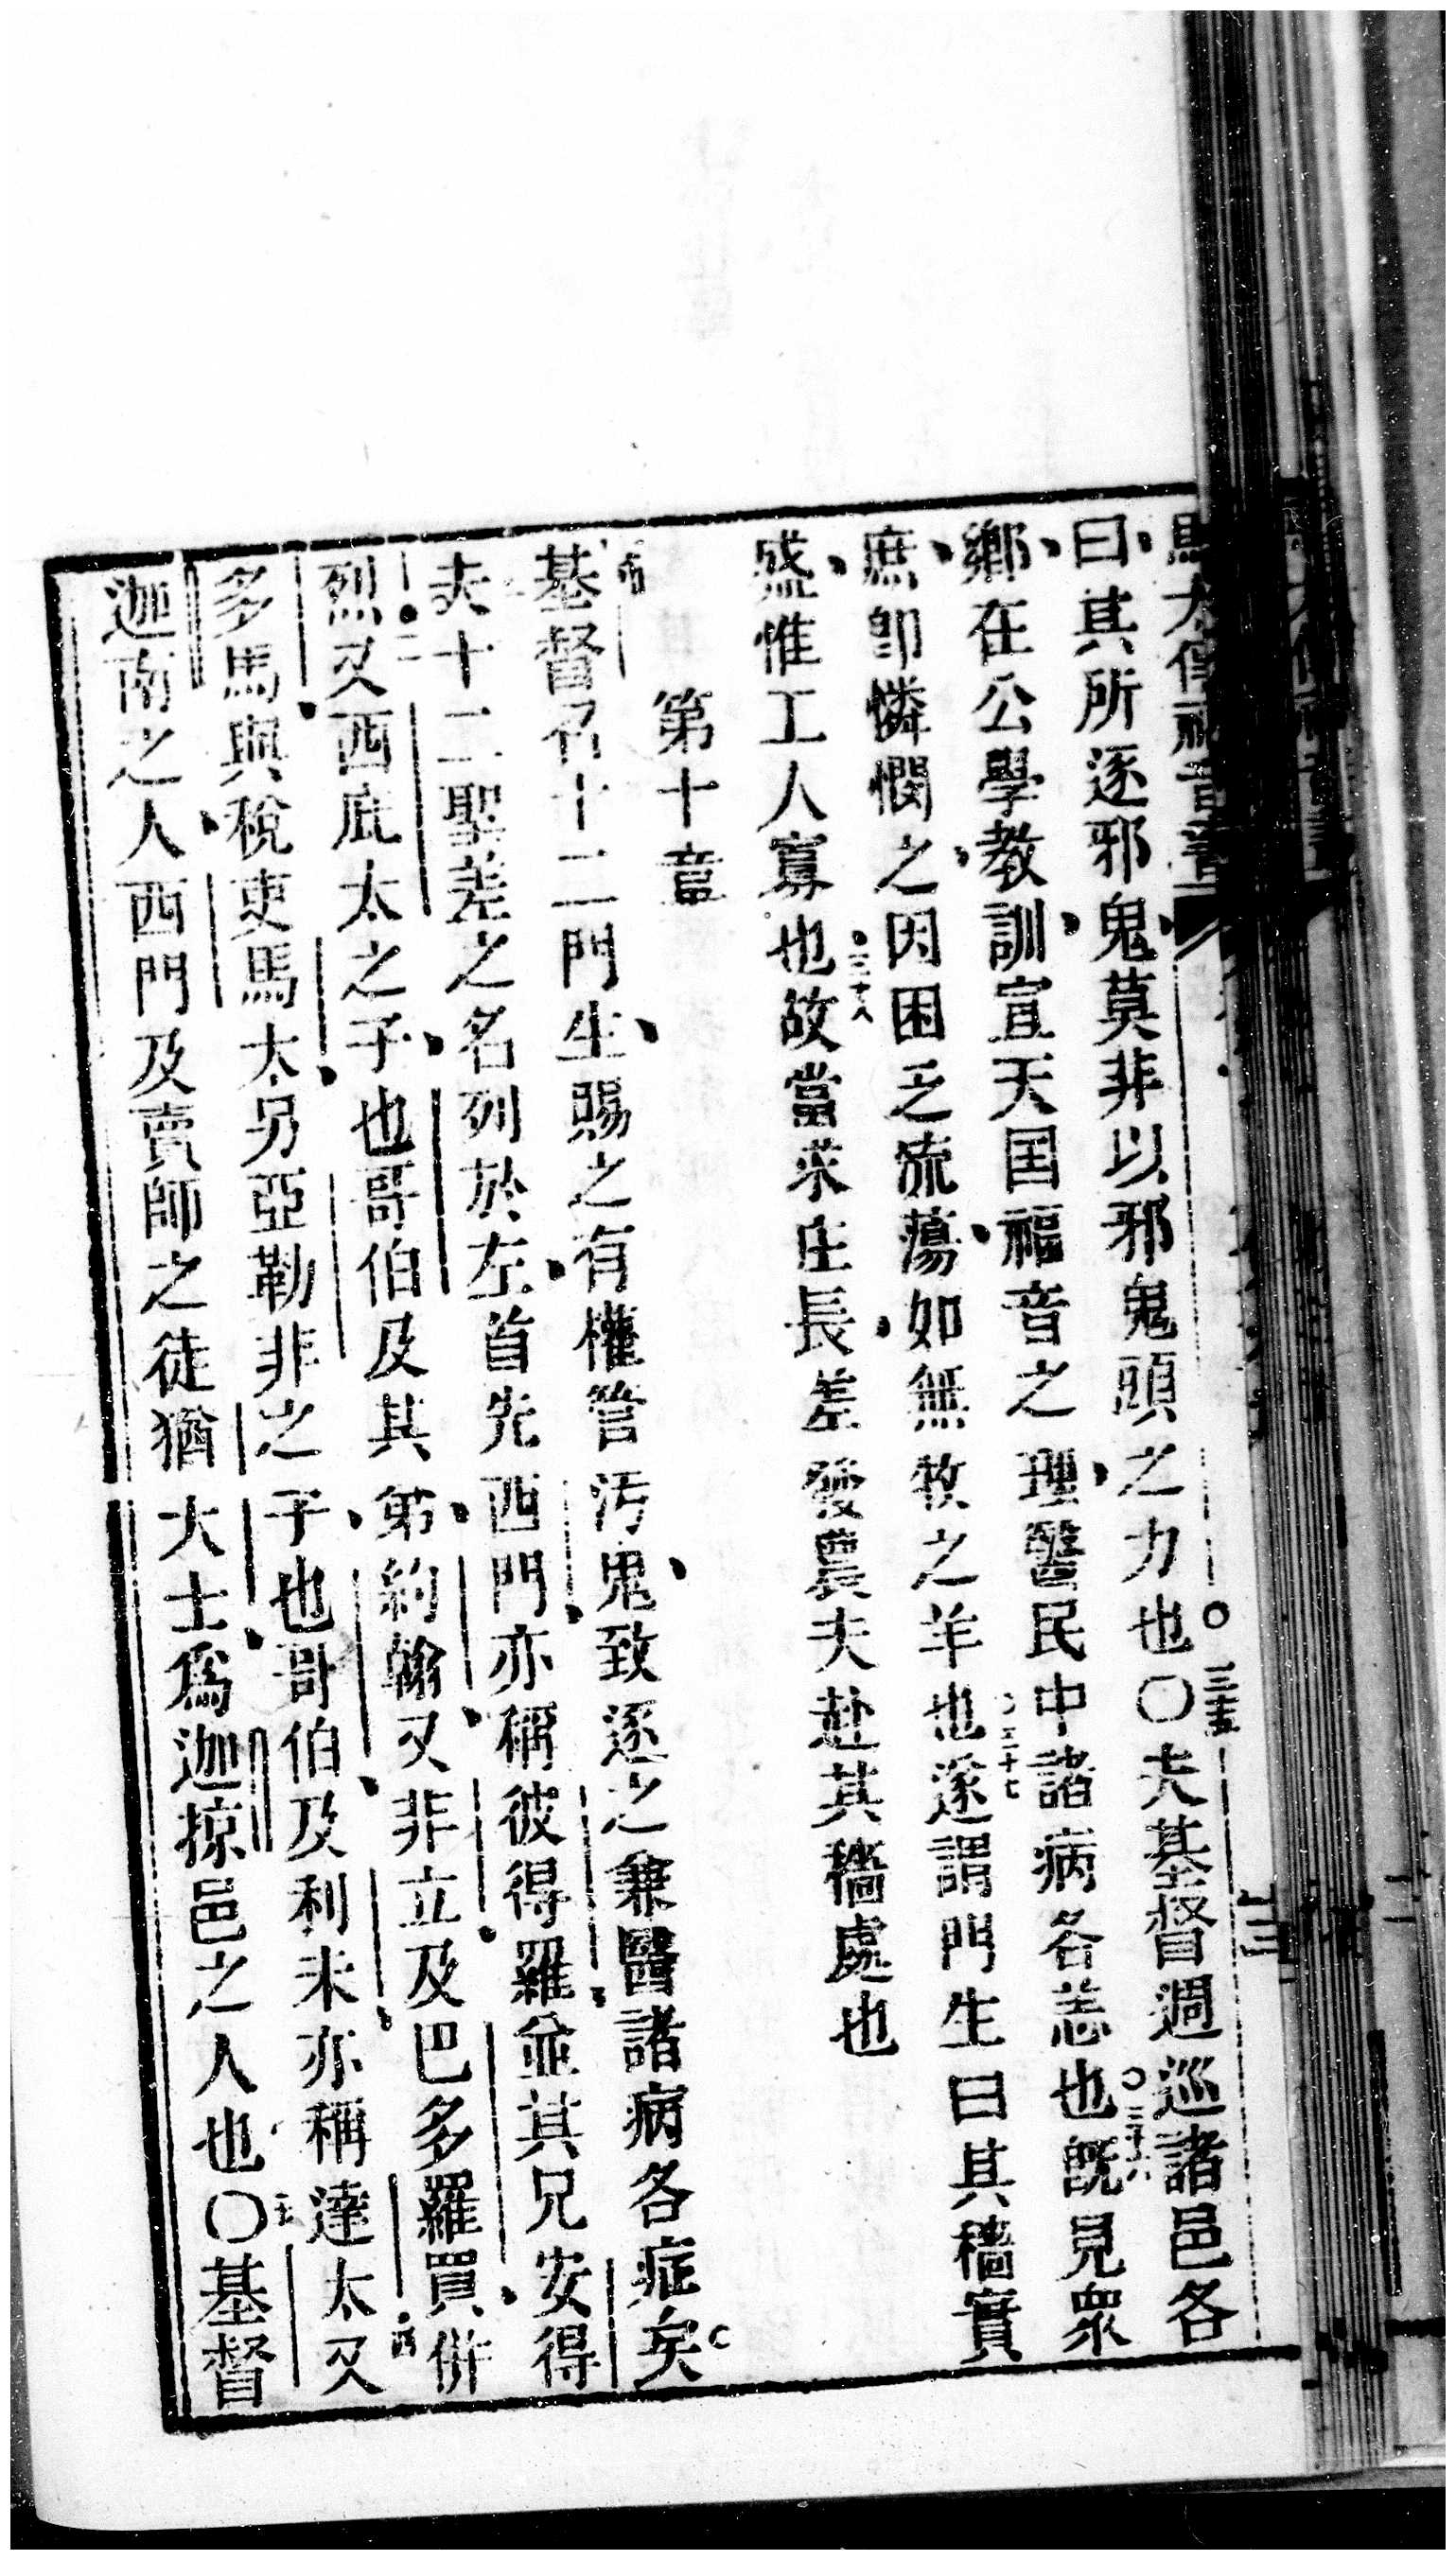 馬太傳福音書
曰其所逐邪鬼莫非以邪鬼頭之力也〇三十五夫基督週巡諸邑各
鄉在公學教訓宣天国福音之理醫民中諸病各恙也三十六旣見衆
庶卽憐憫之因困乏流蕩如無牧之羊也三十七遂謂門生曰其穡實
盛惟工人寡也三十八故當求庄長差發農夫赴其穡處也
第十章
基督召十二門生賜之有權管污鬼致逐之兼醫諸病各症矣
夫十二聖差之名列於左首先西門亦稱彼得羅並其兄安得
烈又西庇太之子也哥伯及其弟約翰三又非立及巴多羅買併
多馬與稅吏馬太另亞勒非之子也哥伯及利未亦稱達太又四
迦南之人西門及賣師之徒猶大士爲迦掠邑之人也〇五基督